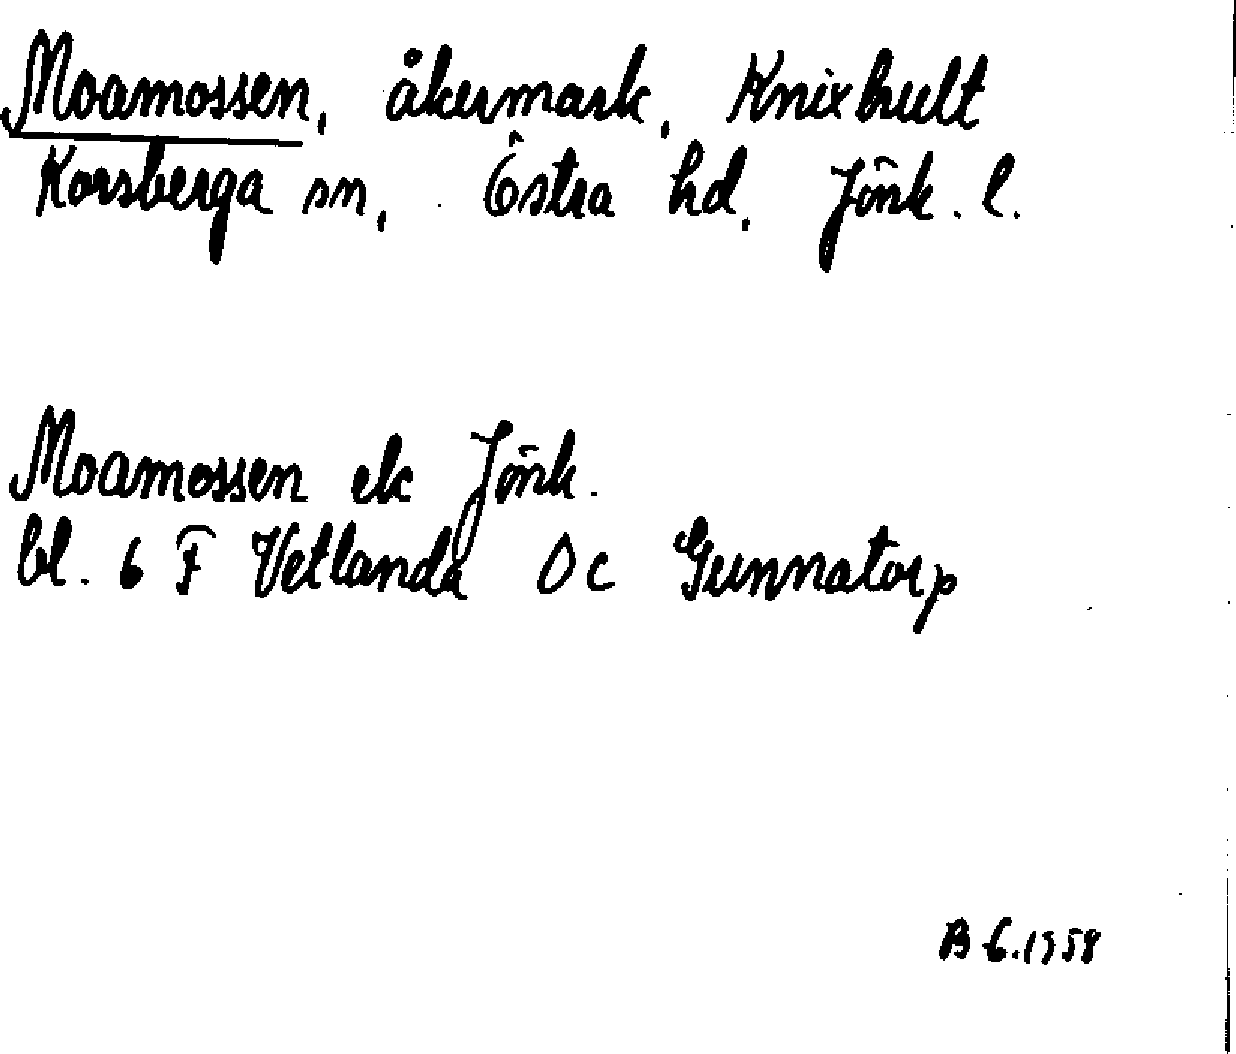 Moamossen, åkermark, Knixhult
Korsberga sn, Östra hd, Jönk. l.
Moamossen ek Jönk.
bl. 6 F Vetlanda 0 c Gunnatorp
B G. 1958